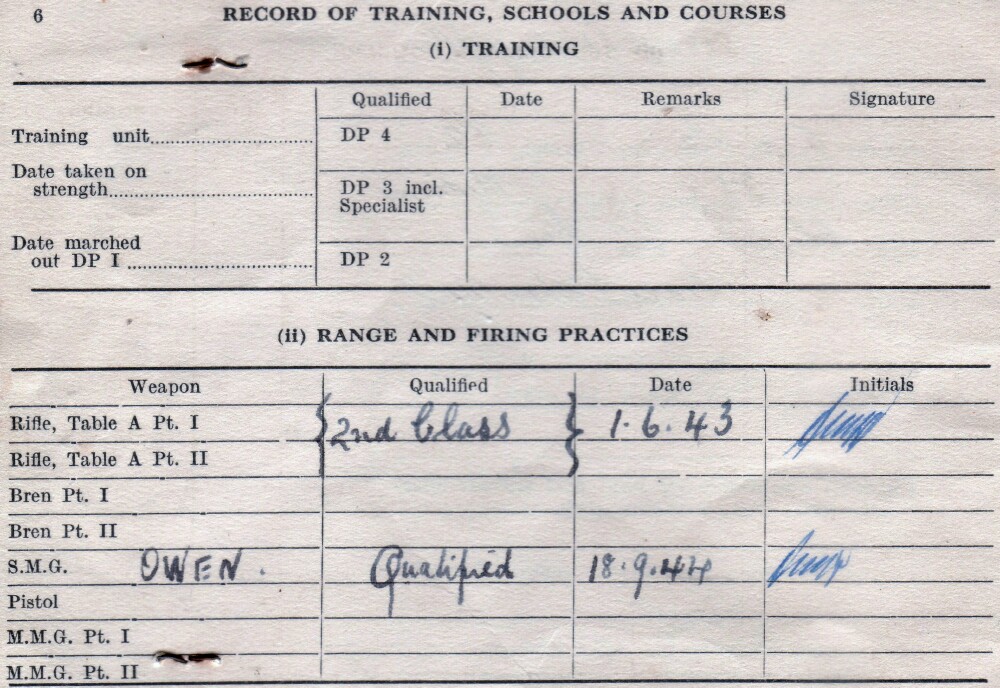 6 RECORD OF TRAINING, SCHOOLS AND COURSES
(i) TRAINING
Qualified Date Remarks Signature
Training unit DP 4
Date taken on
strength DP 3 incl.
Specialist
Date marched
out DP I DP 2
(ii) RANGE AND FIRING PRACTICES
Weapon Qualified Date Initials
Rifle, Table A Pt. I 2nd Class 1.6.43
Rifle, Table A Pt. II
Bren Pt. I
Bren Pt. II
S.M.G. OWEN. Qualified 18.9.44
Pistol
M.M.G. Pt. I
M.M.G. Pt. II